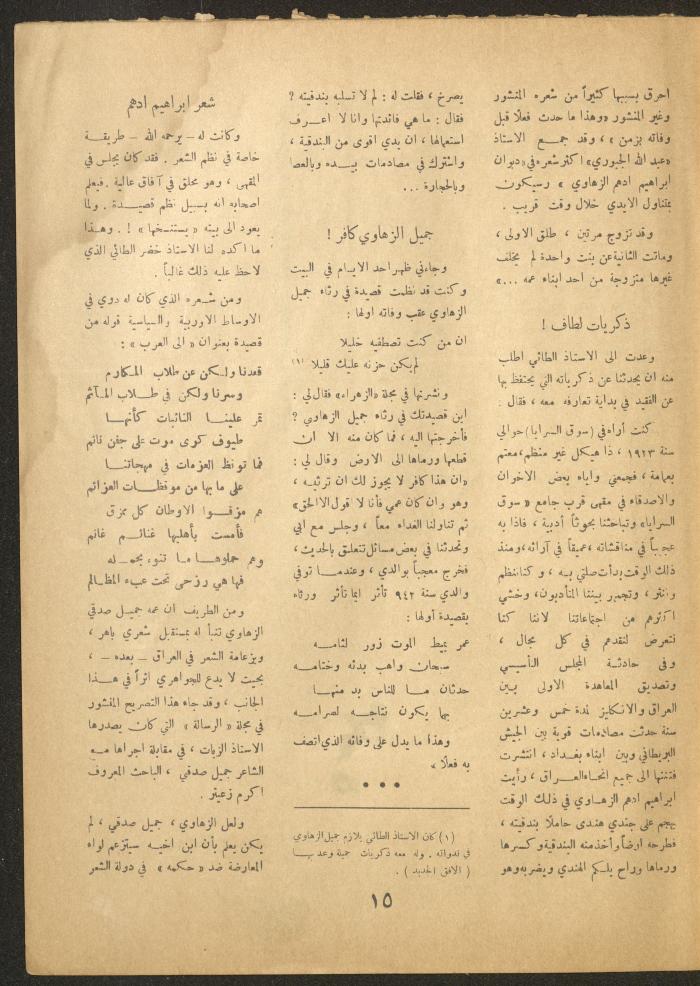 احرق بسببها كثيراً من شعره المنشور
وغير المنشور «وهذا ما حدث فعلاً قبل
وفاته بزمن» ، وقد جمع الاستاذ
«عبد الله الجبوري» اكثر شعره في «ديوان
ابراهيم ادهم الزهاوي» وسيكون
بمتناول الايدي خلال وقت قريب .
وقد تزوج مرتين ، طلق الاولى ،
وماتت الثانية عن بنت واحدة لم يخلف
غيرها متزوجة من احد ابناء عمه ...»
ذكريات لطاف !
وعدت الى الاستاذ الطائي اطلب
منه ان يحدثنا عن ذكرياته التي يحتفظ بها
عن الفقيد في بداية تعارفه معه ، فقال :
كنت أراه في (سوق السرايا) حوالي
سنة ١٩٢٣ ، ذا هيكل غير منظم، معتم
بعمامة ، فجمعني واياه بعض الاخوان
والاصدقاء في مقهى قرب جامع «سوق
السرايا» وتباحثنا بحوثاً أدبية ، فاذا به
عجيباً في مناقشاته ،عميقاً في آرائه، ومنذ
ذلك الوقت بدأت صلتي به ، وكنا ننظم
وننثر ، وتجمهر بيننا المتأدبون، وخشي
اكثرهم من اجتماعاتنا لاننا كنا
نتعرض لنقدهم في كل مجال ،
وفي حادثة المجلس التأسيسي
وتصديق المعاهدة الاولى بين
العراق والانكليز لمدة خمس وعشرين
سنة حدثت مصادمات قوية بين الجيش
البريطاني وبين ابناء بغداد ، انتشرت
فتنتها الى جميع انحاء العراق ، رأيت
ابراهيم ادهم الزهاوي في ذلك الوقت
يهجم على جندي هندي حاملاً بندقيته ،
فطرحه ارضاً وأخذ منه البندقية وكسرها
ورماها وراح يلكم الهندي ويضربه وهو
يصرخ ، فقلت له : لم لا تسلبه بندقيته ؟
فقال : ما هي فائدتها وانا لا اعرف
استعمالها ، ان يدي اقوى من البندقية ،
واشترك في مصادمات بيده وبالعصا
وبالحجارة ...
جميل الزهاوي كافر !
وجاءني ظهر احد الايام في البيت
وكنت قد نظمت قصيدة في رثاء جميل
الزهاوي عقب وفاته اولها :
ان من كنت تصطفيه خليلا
لم يكن حزنه عليك قليلا (١)
ونشرتها في مجلة «الزهراء» فقال لي :
اين قصيدتك في رثاء جميل الزهاوي ؟
فأخرجتها اليه ، فما كان منه الا ان
قطعها ورماها الى الارض وقال لي :
«ان هذا كافر لا يجوز لك ان ترثيه ،
وهو وان كان عمي فأنا لا اقول الا الحق»
ثم تناولنا الغداء معاً ، وجلس مع ابي
وتحدثنا في بعض مسائل تتعلق بالحديث ،
فخرج معجباً بوالدي ، وعندما توفي
والدي سنة ٩٤٢ تأثر ايما تأثر ورثاه
بقصيدة أولها :
عمر يميط الموت زور لثامه
سبحان واهب بدئه وختامه
حدثان ما للناس بد منهما
بهما يكون نتاجه لصرامه
وهذا ما يدل على وفائه الذي اتصف
به فعلاً »
● ● ●
(١) كان الاستاذ الطائي يلازم جميل الزهاوي
في ندواته . وله معه ذكريات جميلة وعد بها
( الافق الجديد ) .
شعر ابراهيم ادهم
وكانت له – يرحمه الله – طريقة
خاصة في نظم الشعر . فقد كان يجلس في
المقهى ، وهو محلق في آفاق عالية . فيعلم
اصحابه انه بسبيل نظم قصيدة . ولما
يعود الى بيته «يستنسخها» ! . وهذا
ما اكده لنا الاستاذ خضر الطائي الذي
لاحظ عليه ذلك غالباً .
ومن شعره الذي كان له دوي في
الاوساط الاوربية والسياسية قوله من
قصيدة بعنوان «الى العرب» :
قعدنا ولكن عن طلاب المكارم
وسرنا ولكن في طلاب المآثم
تمر علينا النائبات كأنها
طيوف كرى موت على جفن نائم
فما توقظ العزمات في مهجاتنا
على ما بها من موقظات العزائم
هم مزقوا الاوطان كل ممزق
فأمست بأهليها غنائم غانم
وهم حملوها ما تنوء بحمله
فها هي رزحى تحت عبء المظالم
ومن الطريف ان عمه جميل صدقي
الزهاوي تنبأ له بمستقبل شعري باهر ،
وبزعامة الشعر في العراق – بعده – ،
بحيث لا يدع للجواهري اثراً في هذا
الجانب ، وقد جاء هذا التصريح المنشور
في مجلة «الرسالة» التي كان يصدرها
الاستاذ الزيات ، في مقابلة اجراها مع
الشاعر جميل صدقي ، الباحث المعروف
اكرم زعيتر .
ولعل الزهاوي ، جميل صدقي ، لم
يكن يعلم بأن ابن اخيه سيتزعم لواء
المعارضة ضد «حكمه» في دولة الشعر
١٥